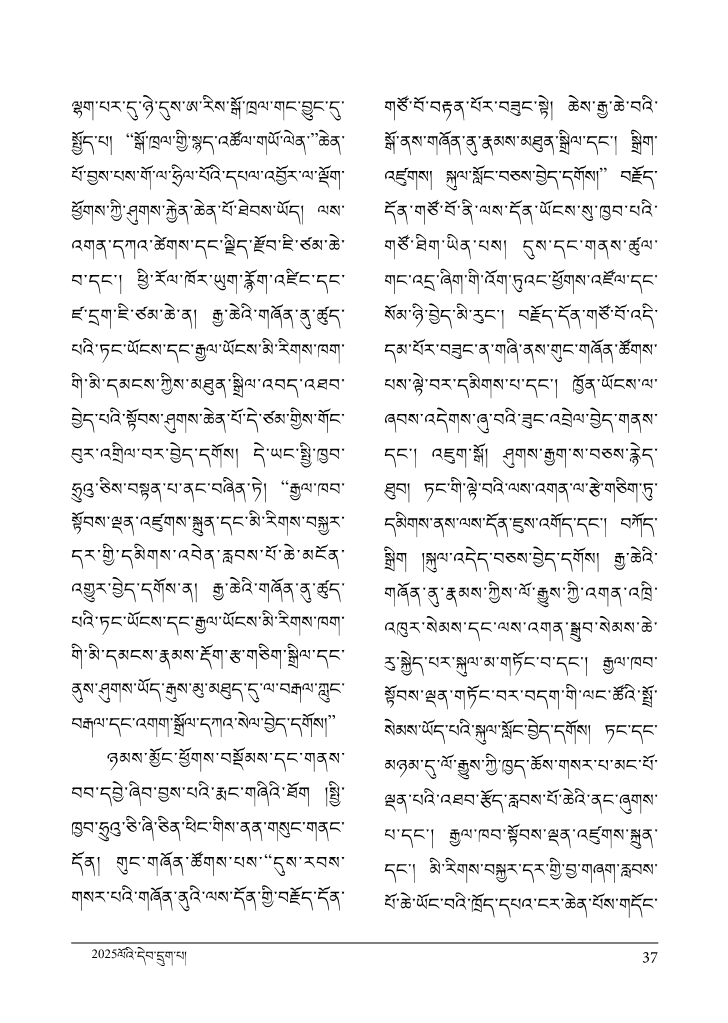 ལྷག་པར་དུ་ཉེ་དུས་ཨ་རིས་སྒོ་ཁྲལ་གང་བྱུང་དུ་
སྤྱོད་པ། “སྒོ་ཁྲལ་གྱི་སྙད་འཚོལ་གཡོ་ལེན་”ཆེན་
པོ་བྱས་པས་གོ་ལ་ཧྲིལ་པོའི་དཔལ་འབྱོར་ལ་ལྡོག་
ཕྱོགས་ཀྱི་ཤུགས་རྐྱེན་ཆེན་པོ་ཐེབས་ཡོད། ལས་
འགན་དཀའ་ཚེགས་དང་ལྗིད་རྫོབ་ཇི་ཙམ་ཆེ་
བ་དང་། ཕྱི་རོལ་ཁོར་ཡུག་རྙོག་འཛིང་དང་
ཛ་དྲག་ཇི་ཙམ་ཆེ་ན། རྒྱ་ཆེའི་གཞོན་ནུ་ཚུད་
པའི་ཏང་ཡོངས་དང་རྒྱལ་ཡོངས་མི་རིགས་ཁག་
གི་མི་དམངས་ཀྱིས་མཐུན་སྒྲིལ་འབད་འཐབ་
བྱེད་པའི་སྟོབས་ཤུགས་ཆེན་པོ་དེ་ཙམ་གྱིས་གོང་
བུར་འགྲིལ་བར་བྱེད་དགོས། དེ་ཡང་སྤྱི་ཁྱབ་
ཧྲུའུ་ཅིས་བསྟན་པ་ནང་བཞིན་ཏེ། “རྒྱལ་ཁབ་
སྟོབས་ལྡན་འཛུགས་སྐྲུན་དང་མི་རིགས་བསྐྱར་
དར་གྱི་དམིགས་འབེན་རླབས་པོ་ཆེ་མངོན་
འགྱུར་བྱེད་དགོས་ན། རྒྱ་ཆེའི་གཞོན་ནུ་ཚུད་
པའི་ཏང་ཡོངས་དང་རྒྱལ་ཡོངས་མི་རིགས་ཁག་
གི་མི་དམངས་རྣམས་རྡོག་རྩ་གཅིག་སྒྲིལ་དང་
ནུས་ཤུགས་ཡོད་རྒུས་མུ་མཐུད་དུ་ལ་བརྒལ་ཀླུང་
བརྒལ་དང་འགག་སྒྲོལ་དཀའ་སེལ་བྱེད་དགོས།”
ཉམས་མྱོང་ཕྱོགས་བསྡོམས་དང་གནས་
བབ་དབྱེ་ཞིབ་བྱས་པའི་རྨང་གཞིའི་ཐོག །སྤྱི་
ཁྱབ་ཧྲུའུ་ཅི་ཞི་ཅིན་ཕིང་གིས་ནན་གསུང་གནང་
དོན། གུང་གཞོན་ཚོགས་པས་“དུས་རབས་
གསར་པའི་གཞོན་ནུའི་ལས་དོན་གྱི་བརྗོད་དོན་
གཙོ་བོ་བརྟན་པོར་བཟུང་སྟེ། ཆེས་རྒྱ་ཆེ་བའི་
སྒོ་ནས་གཞོན་ནུ་རྣམས་མཐུན་སྒྲིལ་དང་། སྒྲིག་
འཛུགས། སྐུལ་སློང་བཅས་བྱེད་དགོས།” བརྗོད་
དོན་གཙོ་བོ་ནི་ལས་དོན་ཡོངས་སུ་ཁྱབ་པའི་
གཙོ་ཐིག་ཡིན་པས། དུས་དང་གནས་ཚུལ་
གང་འདྲ་ཞིག་གི་འོག་ཏུའང་ཕྱོགས་འཛོལ་དང་
སོམ་ཉི་བྱེད་མི་རུང་། བརྗོད་དོན་གཙོ་བོ་འདི་
དམ་པོར་བཟུང་ན་གཞི་ནས་གུང་གཞོན་ཚོགས་
པས་ལྟེ་བར་དམིགས་པ་དང་། ཁྱོན་ཡོངས་ལ་
ཞབས་འདེགས་ཞུ་བའི་ཟུང་འབྲེལ་བྱེད་གནས་
དང་། འཇུག་སྒོ། ཤུགས་རྒྱག་ས་བཅས་རྙེད་
ཐུབ། ཏང་གི་ལྟེ་བའི་ལས་འགན་ལ་རྩེ་གཅིག་ཏུ་
དམིགས་ནས་ལས་དོན་ཇུས་འགོད་དང་། བཀོད་
སྒྲིག །སྐུལ་འདེད་བཅས་བྱེད་དགོས། རྒྱ་ཆེའི་
གཞོན་ནུ་རྣམས་ཀྱིས་ལོ་རྒྱུས་ཀྱི་འགན་འཁྲི་
འཁུར་སེམས་དང་ལས་འགན་སྒྲུབ་སེམས་ཆེ་
རུ་སྐྱེད་པར་སྐུལ་མ་གཏོང་བ་དང་། རྒྱལ་ཁབ་
སྟོབས་ལྡན་གཏོང་བར་བདག་གི་ལང་ཚོའི་སྤྲོ་
སེམས་ཡོད་པའི་སྐུལ་སློང་བྱེད་དགོས། ཏང་དང་
མཉམ་དུ་ལོ་རྒྱུས་ཀྱི་ཁྱད་ཆོས་གསར་པ་མང་པོ་
ལྡན་པའི་འཐབ་རྩོད་རླབས་པོ་ཆེའི་ནང་ཞུགས་
པ་དང་། རྒྱལ་ཁབ་སྟོབས་ལྡན་འཛུགས་སྐྲུན་
དང་། མི་རིགས་བསྐྱར་དར་གྱི་བྱ་གཞག་རླབས་
པོ་ཆེ་ཡོང་བའི་ཁྲོད་དཔའ་ངར་ཆེན་པོས་གདོང་
2025ལོའི་དེབ་དྲུག་པ།
37